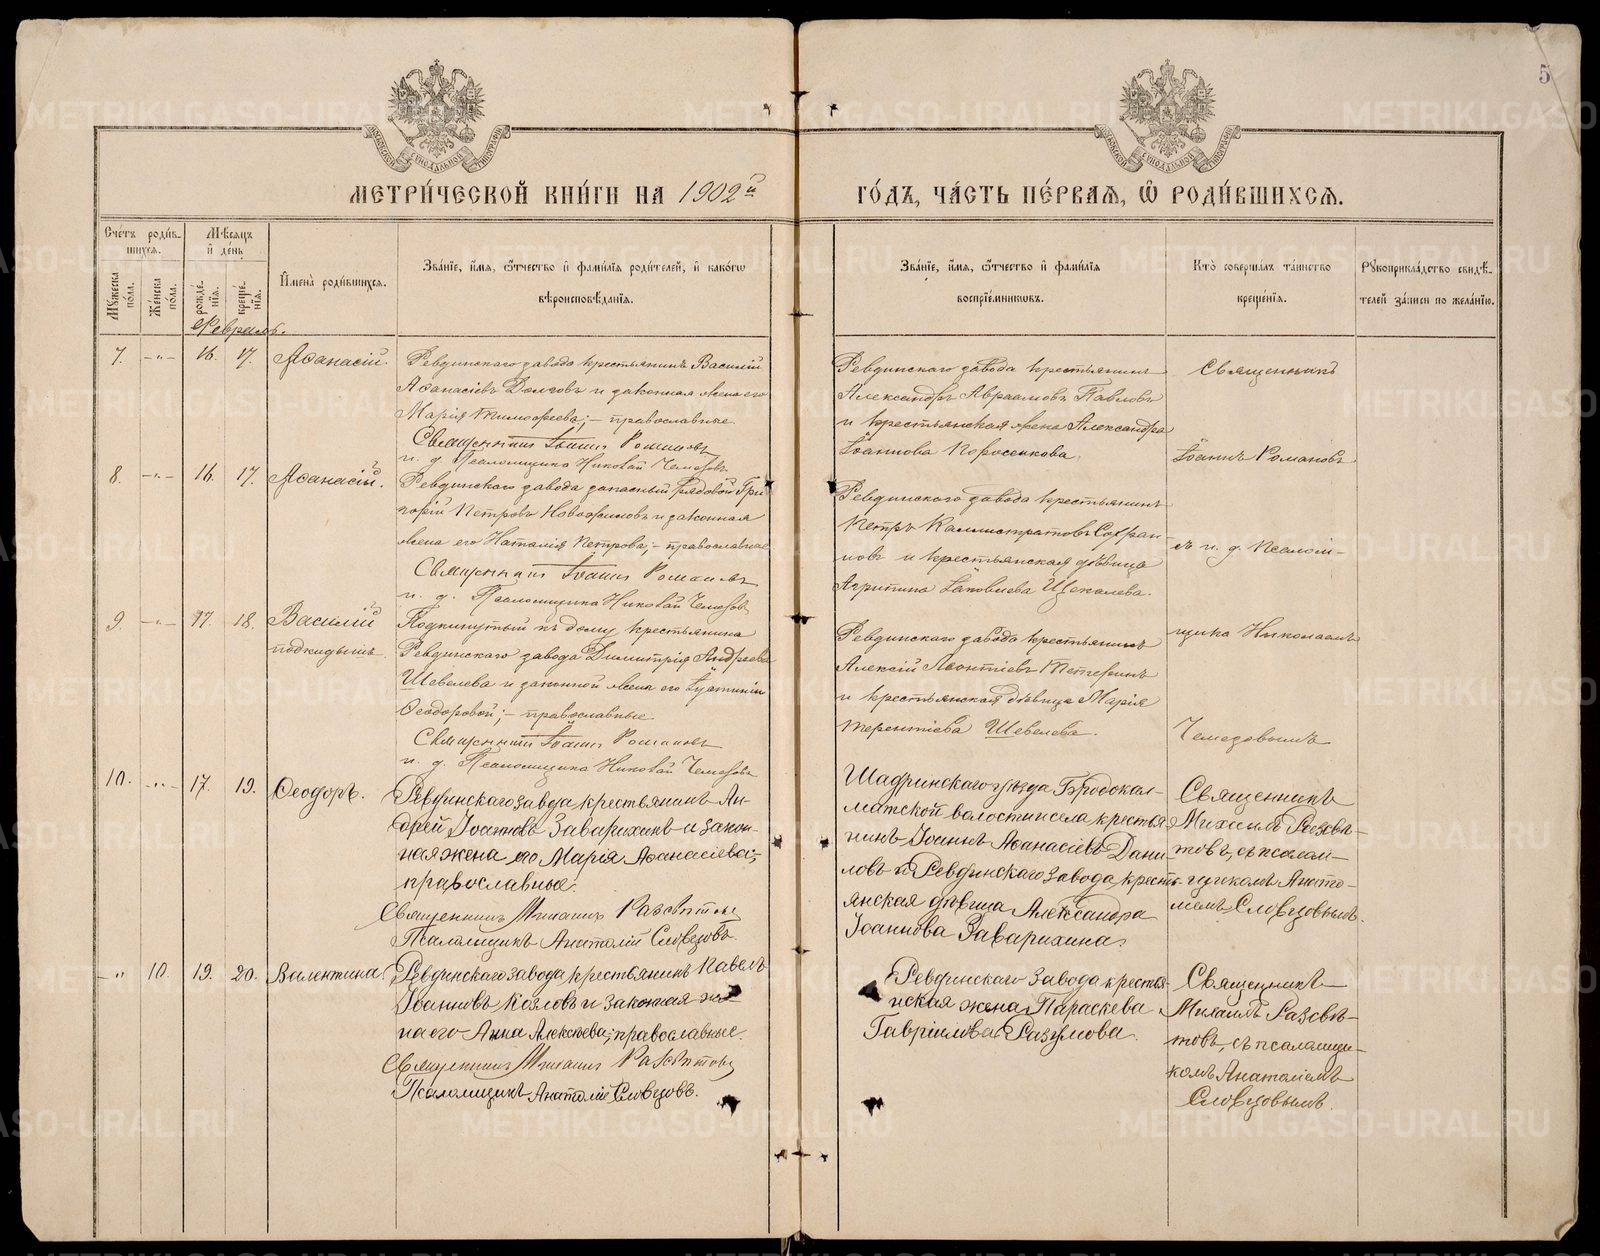 5
МЕТРИ́ЧЕСКОЙ КНИ́ГИ НА 1902й ГО́ДЪ, ЧА́СТЬ ПЕ́РВАѦ, Ѡ РОДИ́ВШИХСѦ.
Сче́тъ роди́вшихсѧ.
Мꙋ́жеска по́ла.
Же́нска по́ла.
Мѣ́сѧцъ и҆ де́нь
рожде́нїѧ.
креще́нїѧ.
И҆мена̀ роди́вшихсѧ.
Зва́нїе, и҆́мѧ, ѻ҆́тчество и҆ фами́лїѧ роди́телей, и҆ како́гѡ
вѣроисповѣ́данїѧ.
Зва́нїе, и҆́мѧ, ѻ҆́тчество и҆ фами́лїѧ
воспрїе́мниковъ.
Кто̀ соверша́лъ та́инство
креще́нїѧ.
Рꙋкоприкла́дство свидѣ́-
телей за́писи по жела́нїю.
Февраль.
7. -„- 16. 17. Аѳанасій.
Ревдинскаго завода крестьянинъ Василій
Аѳанасіевъ Долговъ и законная жена его
Марія Тимоѳеева; – православные.
Священникъ Іоаннъ Романовъ
и. д. Псаломщика Николай Чемезовъ
Ревдинскаго завода крестьянинъ
Александръ Авраамовъ Павловъ
и крестьянская жена Александра
Іоаннова Поросенкова.
Священникъ
Іоаннъ Романовъ
8. -„- 16. 17. Аѳанасій.
Ревдинскаго завода запасный рядовой Гри-
горій Петровъ Новожиловъ и законная
жена его Наталія Петрова; – православные
Священникъ Іоаннъ Романовъ
и. д. Псаломщика Николай Чемезовъ
Ревдинскаго завода крестьянинъ
Петръ Каллистратовъ Софро-
новъ и крестьянская дѣвица
Агрипина Іаковлева Щекалева.
съ и. д. Псалом-
9. -„- 17. 18. Василій
подкидышъ.
Подкинутый къ дому крестьянина
Ревдинскаго завода Димитрія Андреева
Шевелева и законной жены его
Ѳеодоровой; – православные.
Священникъ Іоаннъ Романовъ
и. д. Псаломщика Николай Чемезовъ
Ревдинскаго завода крестьянинъ
Алексій Леонтіевъ Тетеринъ
и крестьянская дѣвица Марія
Терентіева Шевелева.
щика Николаемъ
Чемезовымъ
10. -„- 17. 19. Ѳеодоръ.
Ревдинскаго завода крестьянинъ Ан-
дрей Іоанновъ Заварихинъ и закон-
ная жена его Марія Аѳанасіева;
православные.
Священникъ Михаилъ Разсвѣтовъ
Псаломщикъ Анатолій Словцовъ.
Шадринскаго уѣзда Бродокал-
матской волости и села крестья-
нинъ Іоаннъ Аѳанасіевъ Дани-
ловъ и Ревдинскаго завода кресть-
янская дѣвица Александра
Іоаннова Заварихина.
Священникъ
Михаилъ Разсвѣ-
товъ, съ псалом-
щикомъ Анато-
ліемъ Словцовымъ.
-„ 10. 19. 20. Валентина.
Ревдинскаго завода крестьянинъ Павелъ
Іоанновъ Козловъ и законная же-
на его Анна Алексѣева; православные.
Священникъ Михаилъ Разсвѣтовъ
Псаломщикъ Анатолій Словцовъ.
Ревдинскаго завода крестья-
нская жена Параскева
Гавріилова Разумова.
Священникъ
Михаилъ Разсвѣ-
товъ, съ псаломщи-
комъ Анатоліемъ
Словцовымъ.
METRIKI.GASO-URAL.RU